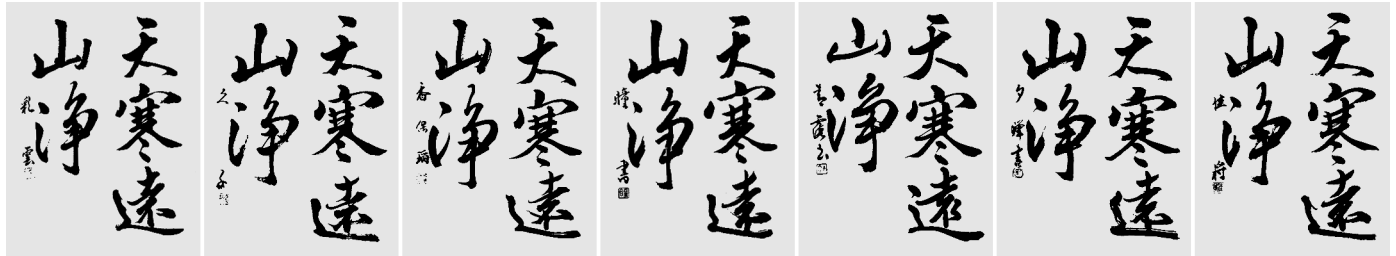 天寒遠
山淨
天寒遠
山淨
久子
天寒遠
山淨
天寒遠
山淨
瞳書
天寒遠
山淨
天寒遠
山淨
天寒遠
山淨